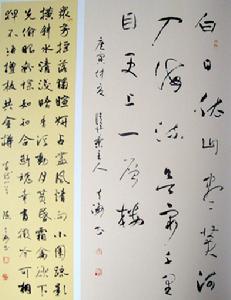 白日依山盡黄河
入海流欲窮千里
目更上一層樓
衆芳摇落獨暄妍占盡風情向小園疏影
横斜水清淺暗香浮動月黄昏霜禽欲下
先偷眼粉蝶如知合斷魂幸有微吟可相
狎不須檀板共金樽